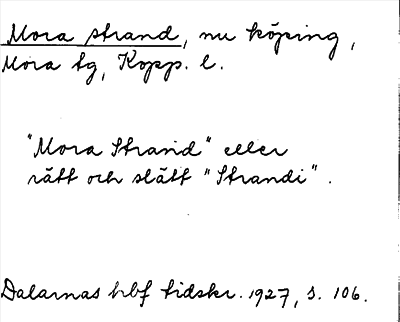 Mora strand, nu köping,
Mora tg, Kopp. l.
"Mora Strand" eller
rätt och slätt "Strandi".
Dalarnas hbf tidskr. 1927, s. 106.